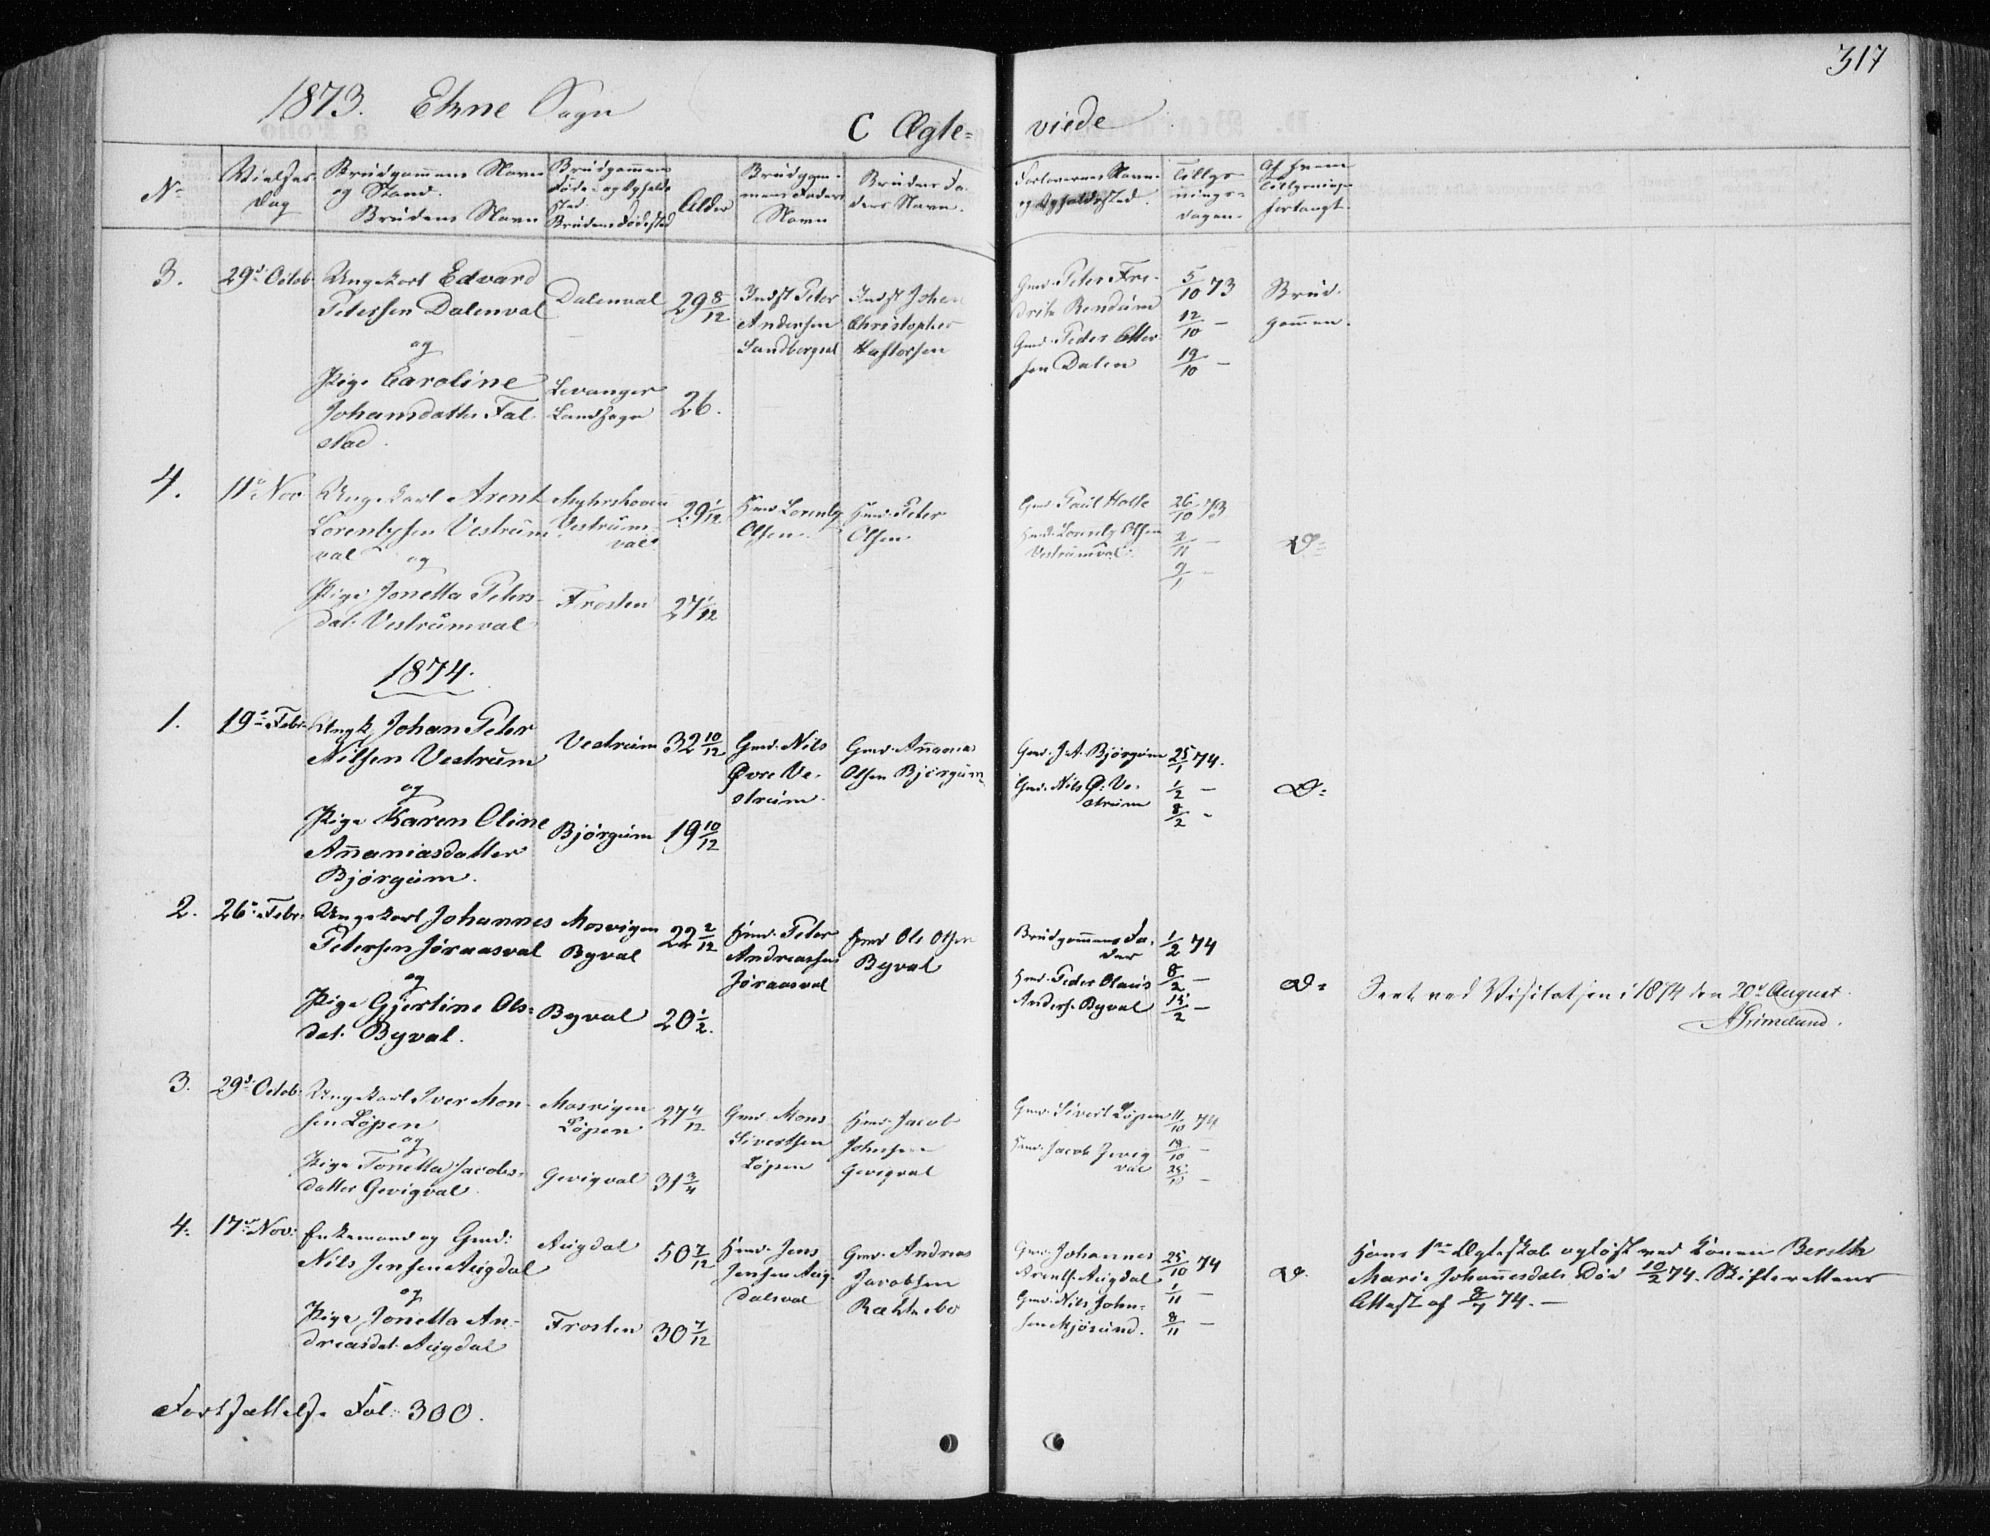 317
1873. Ekne Sogn
C Ægte= viede
No
Vielses
Dag
Brudgommens Navn
og Stand.
Brudens Navn
Brudgommens
Føde- og Opholds
sted.
Brudens Fødested
Alder
Brudgom-
mens Faders
Navn
Brudens Fa-
ders Navn.
Forlovernes Navn
og Opholdssted.
Tillys-
nings-
dagen.
Af hvem
Tillysningen
forlangt.
3.
29d Octob.
Ungekarl Edvard
Petersen Dalenval
og
Pige Caroline
Johansdatter Fal-
stad.
Dalenval
Levanger
Landsogn
29 8/12
26.
Indst Peter
Andersen
Sandbergvald
Indst Johan
Christopher
Haftorsen
Gmd. Peter Fre-
drik Rendum
Gmd. Peder Otter-
sen Dalen
5/10 73
12/10 -
19/10 -
Brud-
gommen.
4.
11t Nov.
Ungekarl Arent
Lorentssen Vestrum
val og
Pige Jonetta Peters-
dat. Vestrumval
Vestrum-
val.
Frosten
29 1/12
27 1/12
Hmd Lorents
Olsen.
Hmd. Peter
Olsen
Gmd. Paul Holte
Hmd. Lorents Olsen
Vestrumval.
26/10 73
2/11 -
9/1 -
D=
1874.
1.
19d Febr.
Ungk. Johan Peter
Nilsen Vestrum
og
Pige Karen Oline
Annaniasdatter
Bjørgum.
Vestrum
Bjørgum
32 10/12
19 10/12
Gmd. Nils
Øvre Ve-
strum.
Gmd. Annanias
Olsen Bjørgum
Gmd. J. A. Bjørgum
Gmd. Nils Ø. Ve-
strum
25/1 74.
1/2 -
8/2 -
D=
2.
26d Febr.
Ungekarl Johannes
Petersen Jøraasval
og
Pige Gjertine Ols-
dat. Byval.
Mosvigen
Byval
Byval
22 2/12
20 1/2.
Hmd. Peter
Andreassen
Jøraasval
Hmd Ole Olsen
Byval
Brudgommens Fa-
der
Hmd. Peder Olaus
Anders. Byval
1/2 74
8/2 -
15/2 -
D=
Seet ved Visitatsen i 1874 den 20d August.
AGrimelund.
3.
29d Octob.
Ungekarl Iver Mon-
sen Løpen
og
Pige Tonetta Jacobs-
datter Gevigval
Mosvigen
Løpen
Gevigval
27 4/12
31 3/4
Gmd. Mons
Sivertsen
Løpen
Hmd. Jacob
Johnsen
Gevigval
Gmd. Sivert Løpen
Hmd. Jacob Gevig
val
11/10 74
18/10 -
25/10 -
4.
17d Nov.
Enkemand og Gmd:
Nils Jensen Augdal
og
Pige Jonetta An-
dreasdat. Augdal
Augdal
Frosten
50 7/12
30 7/12
Hmd. Jens
Jensen Aug-
dalsval
Gmd. Andreas
Jacobsen
Gmd. Johannes
Arents. Augdal
Gmd. Nils John-
sen Mjøsund.
25/10 74
1/11 -
8/11 -
D.
Hans 1ste Ægteskab opløst ved Konen Bereth
Marie Johannesdats Død 10/2 74. Skifterettens
Attest af 8/7 74. -
Fortsættelse Fol: 300.